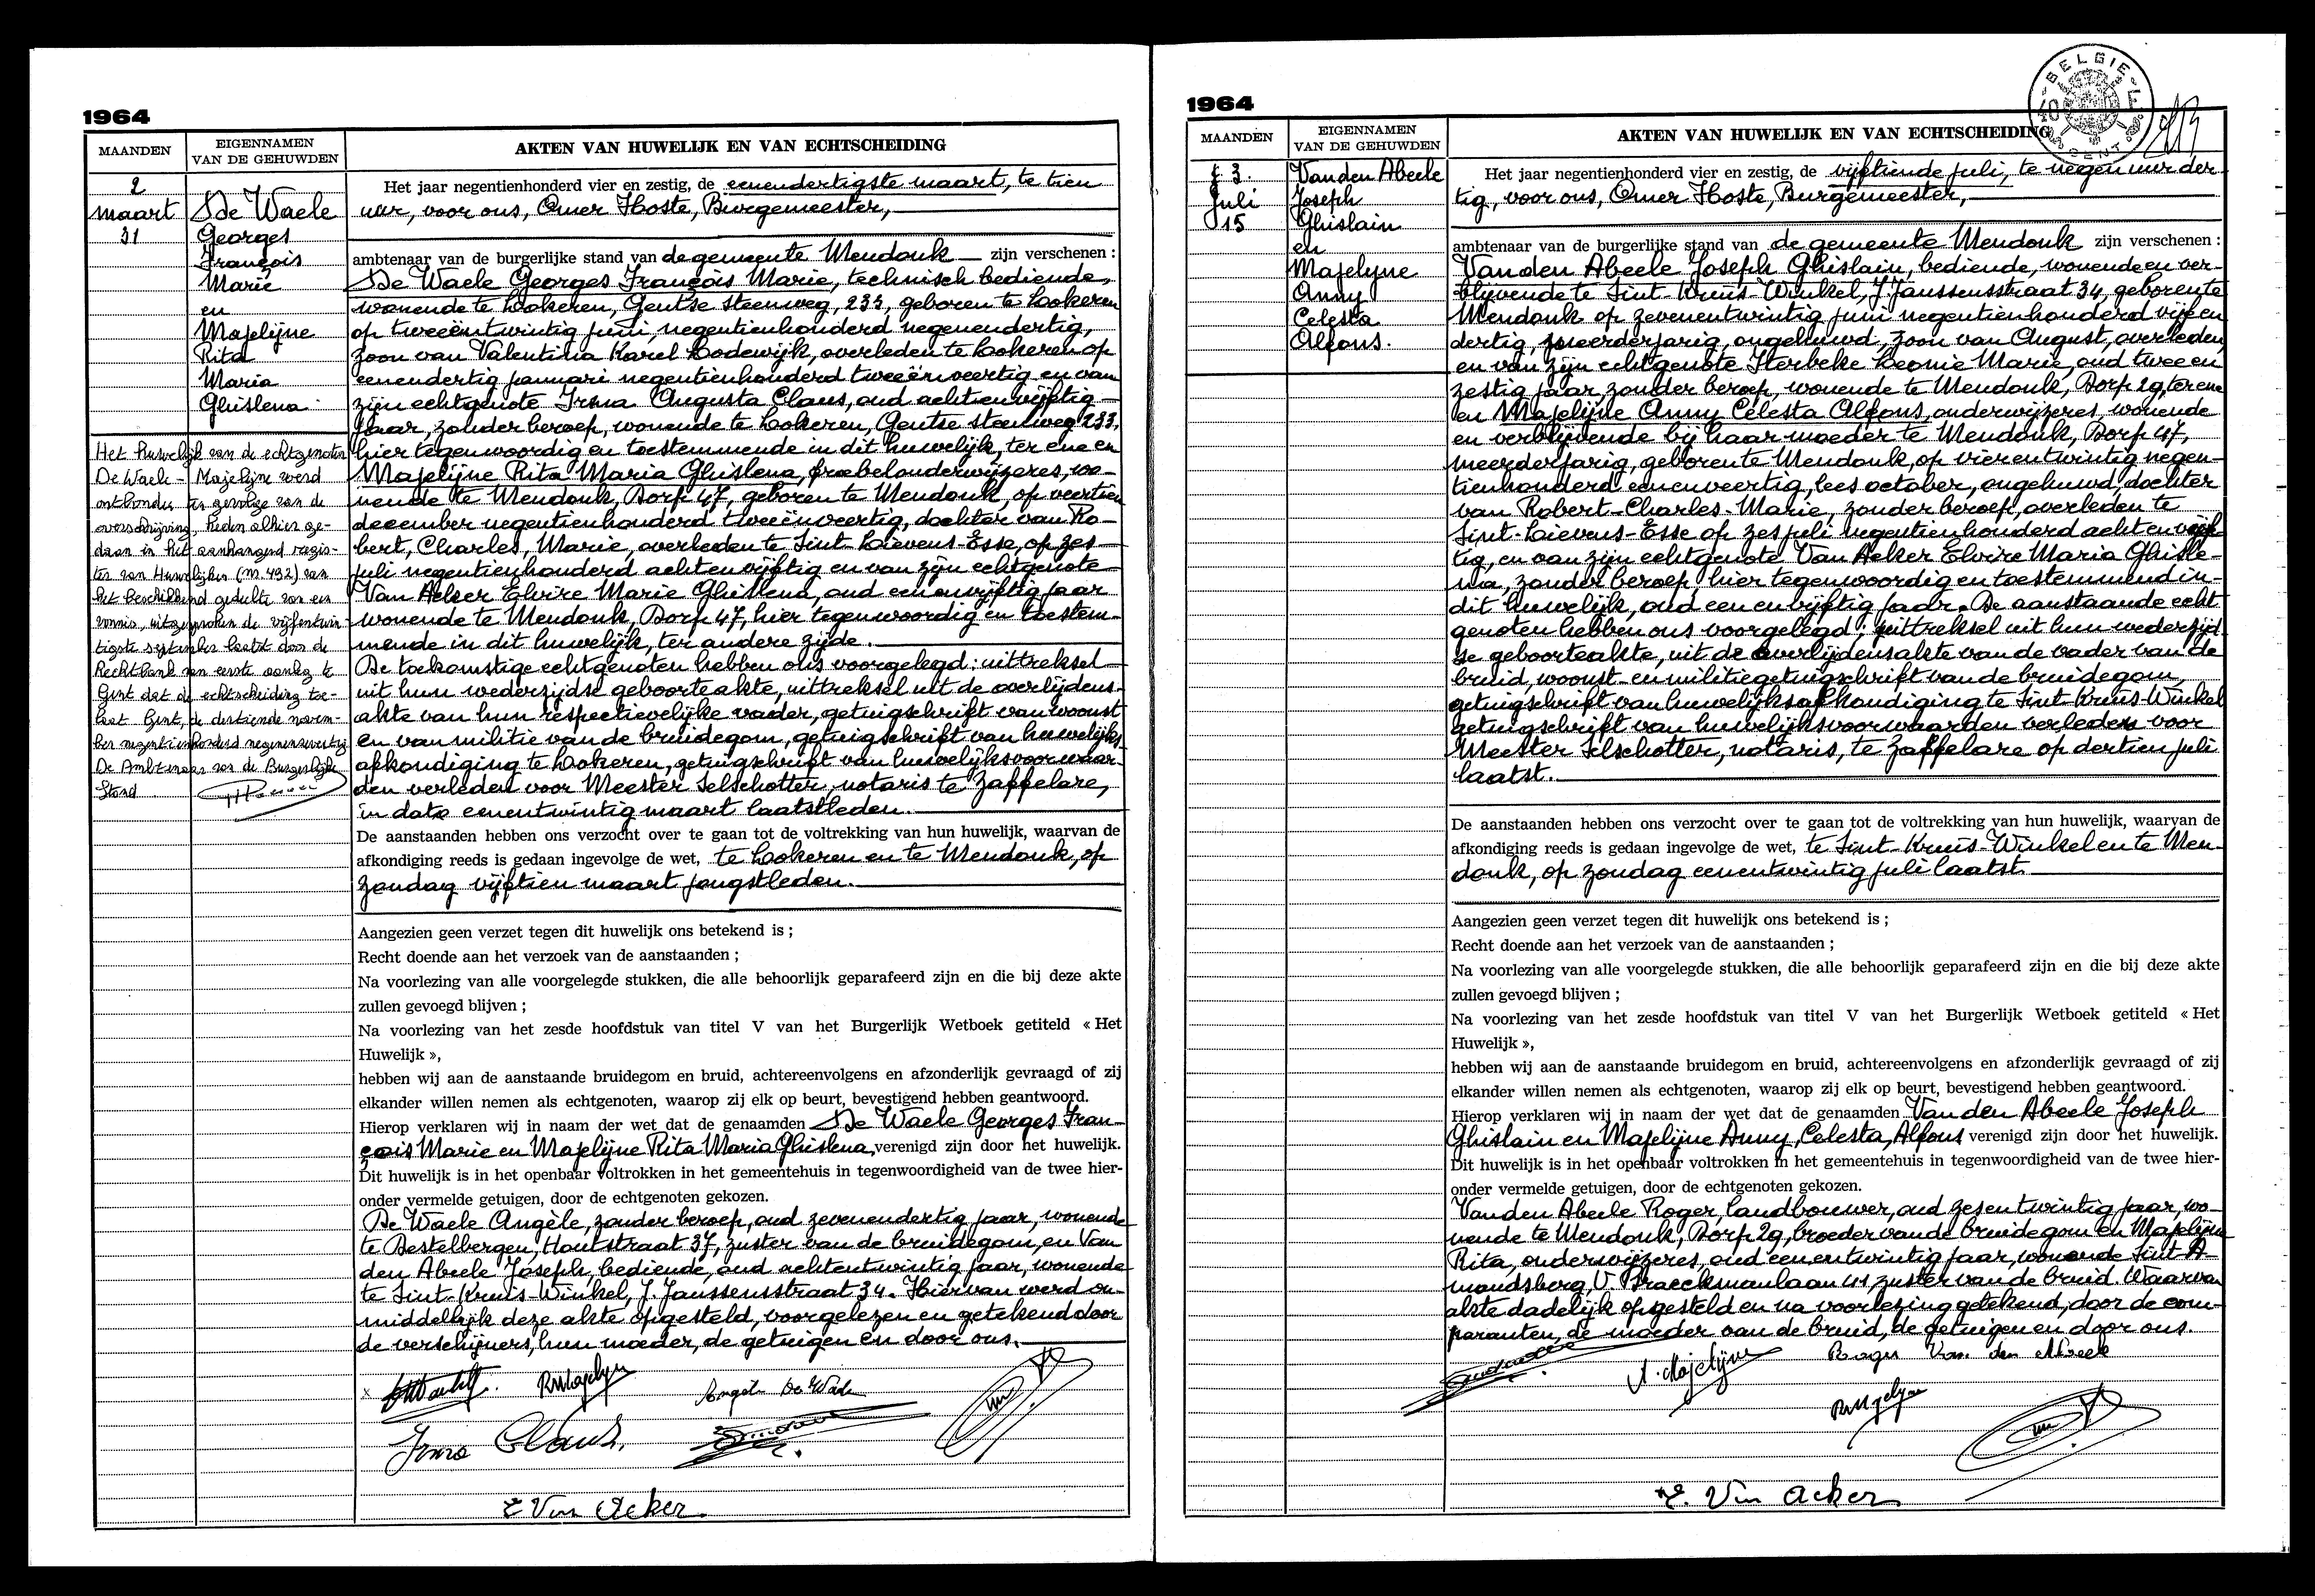 1964
MAANDEN
EIGENNAMEN
VAN DE GEHUWDEN
AKTEN VAN HUWELIJK EN VAN ECHTSCHEIDING
2
maart
31
De Waele
Georges
François
Marie
en
Majelijne
Rita
Maria
Ghislena
Het huwelijk van de echtgenoten
De Waele - Majelijne werd
ontbonden ten gevolge van de
overschrijving, heden alhier ge-
daan in het aanhangend regis-
ter van Huwelijken (nr. 492) van
het beschikkend gedeelte van een
vonnis, uitgesproken de vijfentwin-
tigste september laatst door de
Rechtbank van eerste aanleg te
Gent dat de echtscheiding toe-
laat. Gent, de dertiende novem-
ber negentienhonderd negenenzeventig
De Ambtenaar van de Burgerlijke
Stand
Het jaar negentienhonderd vier en zestig, de eenendertigste maart, te tien
uur, voor ons, Omer Hoste, Burgemeester,
ambtenaar van de burgerlijke stand van de gemeente Mendonk zijn verschenen :
De Waele Georges François Marie, technisch bediende,
wonende te Lokeren, Gentse steenweg, 233, geboren te Lokeren
op tweeëntwintig juni, negentienhonderd negenendertig,
zoon van Valentina Karel Lodewijk, overleden te Lokeren op
eenendertig januari negentienhonderd tweeënveertig en van
zijn echtgenote Irma Augusta Claus, oud achtenvijftig
jaar, zonder beroep, wonende te Lokeren, Gentse steenweg 233,
hier tegenwoordig en toestemmende in dit huwelijk, ter ene en
Majelijne Rita Maria Ghislena, froebelonderwijzeres, wo-
nende te Mendonk, Dorp 47, geboren te Mendonk, op veertien
december negentienhonderd tweeënveertig, dochter van Ro-
bert, Charles, Marie, overleden te Sint-Lievens-Esse, op zes
juli negentienhonderd achtenvijftig en van zijn echtgenote
Van Acker Elvire Marie Ghislena, oud eenenvijftig jaar
wonende te Mendonk, Dorp 47, hier tegenwoordig en toestem-
mende in dit huwelijk, ter andere zijde.
De toekomstige echtgenoten hebben ons voorgelegd: uittreksel
uit hun wederzijdse geboorteakte, uittreksel uit de overlijdens-
akte van hun respectievelijke vader, getuigschrift van woonst
en van militie van de bruidegom, getuigschrift van huwelijks-
afkondiging te Lokeren, getuigschrift van huwelijksvoorwaar-
den verleden voor Meester Selschotter, notaris te Zaffelare,
in dato eenentwintig maart laatstleden.
De aanstaanden hebben ons verzocht over te gaan tot de voltrekking van hun huwelijk, waarvan de
afkondiging reeds is gedaan ingevolge de wet, te Lokeren en te Mendonk, op
zondag vijftien maart jongstleden.
Aangezien geen verzet tegen dit huwelijk ons betekend is ;
Recht doende aan het verzoek van de aanstaanden ;
Na voorlezing van alle voorgelegde stukken, die alle behoorlijk geparafeerd zijn en die bij deze akte
zullen gevoegd blijven ;
Na voorlezing van het zesde hoofdstuk van titel V van het Burgerlijk Wetboek getiteld « Het
Huwelijk »,
hebben wij aan de aanstaande bruidegom en bruid, achtereenvolgens en afzonderlijk gevraagd of zij
elkander willen nemen als echtgenoten, waarop zij elk op beurt, bevestigend hebben geantwoord.
Hierop verklaren wij in naam der wet dat de genaamden De Waele Georges Fran-
çois Marie en Majelijne Rita Maria Ghislena, verenigd zijn door het huwelijk.
Dit huwelijk is in het openbaar voltrokken in het gemeentehuis in tegenwoordigheid van de twee hier-
onder vermelde getuigen, door de echtgenoten gekozen.
De Waele Angèle, zonder beroep, oud zevenendertig jaar, wonende
te Destelbergen, Houtstraat 37, zuster van de bruidegom, en Van
den Abeele Joseph, bediende, oud achtentwintig jaar, wonende
te Sint-Kruis-Winkel, J. Janssensstraat 34. Hiervan werd on-
middellijk deze akte opgesteld, voorgelezen en getekend door
de verschijners, hun moeder, de getuigen en door ons.
RMajelijne
Angèle De Waele
Irma Claus.
E Van Acker.
1964
MAANDEN
EIGENNAMEN
VAN DE GEHUWDEN
AKTEN VAN HUWELIJK EN VAN ECHTSCHEIDING
BELGIE
3.
Juli
15
Van den Abeele
Joseph
Ghislain
en
Majelyne
Anny
Celesta
Alfons.
Het jaar negentienhonderd vier en zestig, de vijftiende juli, te negen uur der
tig, voor ons, Omer Hoste, Burgemeester,
ambtenaar van de burgerlijke stand van de gemeente Mendonk zijn verschenen :
Van den Abeele Joseph Ghislain, bediende, wonende en ver-
blijvende te Sint-Kruis-Winkel, J. Janssensstraat 34, geboren te
Mendonk op zevenentwintig juni negentienhonderd vijfen
dertig, meerderjarig, ongehuwd, zoon van August, overleden
en van zijn echtgenote Sterbeke Leonie Marie, oud twee en
zestig jaar, zonder beroep, wonende te Mendonk, Dorp 29, ter ene
en Majelijne Anny Celesta Alfons, onderwijzeres, wonende
en verblijvende bij haar moeder te Mendonk, Dorp 47,
meerderjarig, geboren te Mendonk, op vierentwintig negen-
tienhonderd eenenveertig, lees october, ongehuwd, dochter
van Robert-Charles-Marie, zonder beroep, overleden te
Sint-Lievens-Esse op zes juli negentienhonderd achtenvijf
tig, en van zijn echtgenote Van Acker Elvire Maria Ghisle-
na, zonder beroep, hier tegenwoordig en toestemmend in
dit huwelijk, oud eenenvijftig jaar. De aanstaande echt
genoten hebben ons voorgelegd: uittreksel uit hun wederzijd
se geboorteakte, uit de overlijdensakte van de vader van de
bruid, woonst- en militiegetuigschrift van de bruidegom,
getuigschrift van huwelijksafkondiging te Sint-Kruis-Winkel
getuigschrift van huwelijksvoorwaarden verleden voor
Meester Selschotter, notaris, te Zaffelare op dertien juli
laatst.
De aanstaanden hebben ons verzocht over te gaan tot de voltrekking van hun huwelijk, waarvan de
afkondiging reeds is gedaan ingevolge de wet, te Sint-Kruis-Winkel en te Men-
donk, op zondag eenentwintig juli laatst.
Aangezien geen verzet tegen dit huwelijk ons betekend is ;
Recht doende aan het verzoek van de aanstaanden ;
Na voorlezing van alle voorgelegde stukken, die alle behoorlijk geparafeerd zijn en die bij deze akte
zullen gevoegd blijven ;
Na voorlezing van het zesde hoofdstuk van titel V van het Burgerlijk Wetboek getiteld « Het
Huwelijk »,
hebben wij aan de aanstaande bruidegom en bruid, achtereenvolgens en afzonderlijk gevraagd of zij
elkander willen nemen als echtgenoten, waarop zij elk op beurt, bevestigend hebben geantwoord.
Hierop verklaren wij in naam der wet dat de genaamden Van den Abeele Joseph
Ghislain en Majelijne Anny, Celesta, Alfons verenigd zijn door het huwelijk.
Dit huwelijk is in het openbaar voltrokken in het gemeentehuis in tegenwoordigheid van de twee hier-
onder vermelde getuigen, door de echtgenoten gekozen.
Van den Abeele Roger, landbouwer, oud zesentwintig jaar, wo-
nende te Mendonk, Dorp 29, broeder van de bruidegom en Majelijne
Rita, onderwijzeres, oud eenentwintig jaar, wonende Sint-A-
mandsberg, V. Braeckmanlaan 41, zuster van de bruid. Waarvan
akte dadelijk opgesteld en na voorlezing getekend, door de com-
paranten, de moeder van de bruid, de getuigen en door ons.
A. Majelijne
Roger Van den Abeele
RMajelijne
E. Van Acker